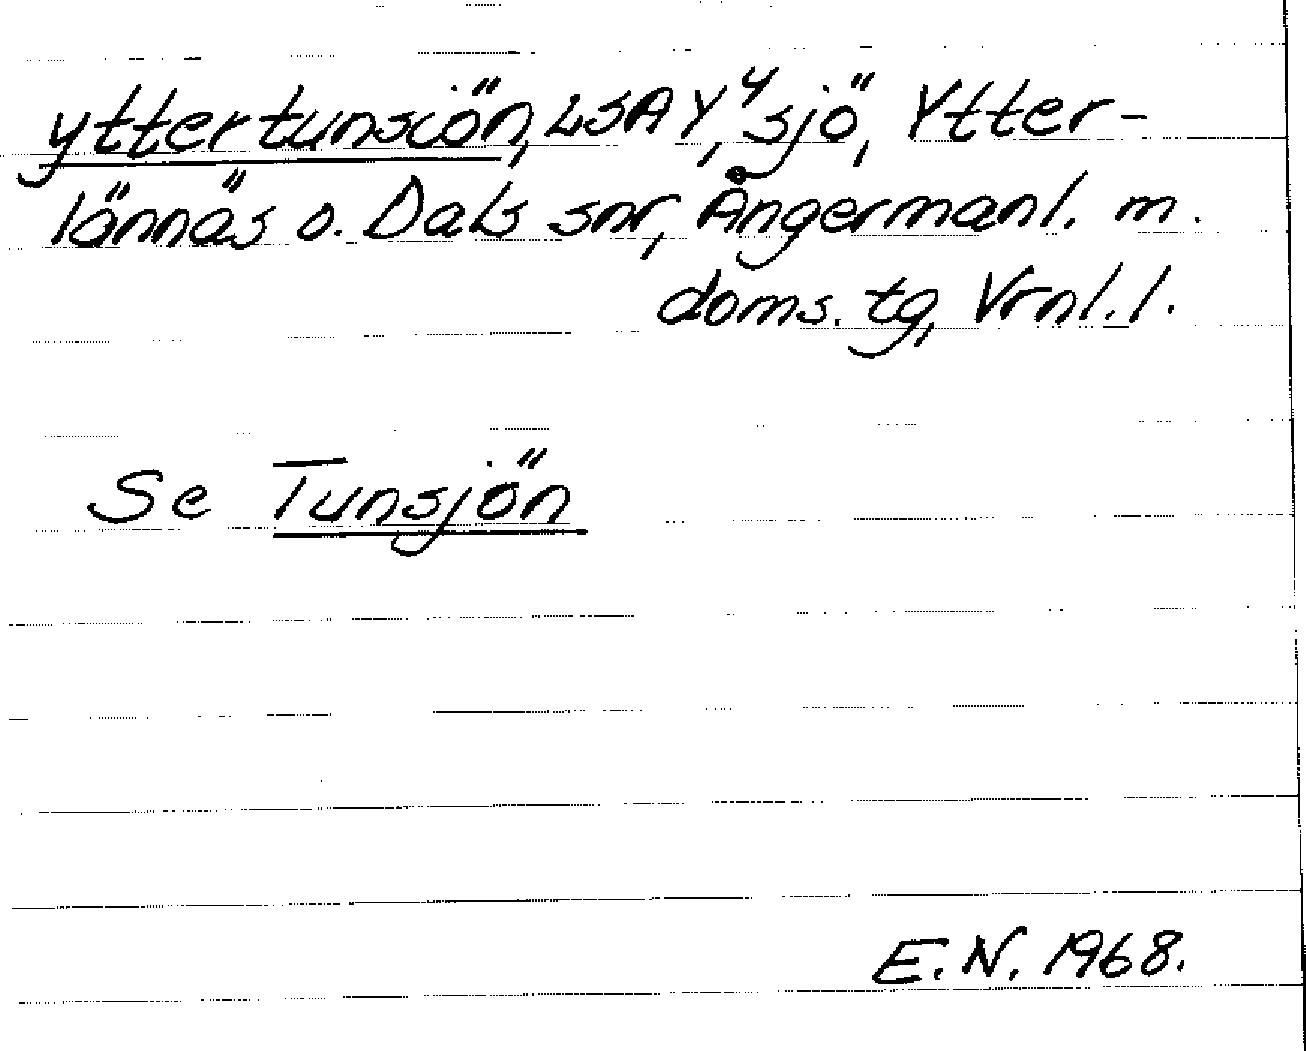 yttertunsiön, LSA Y⁴, sjö, Ytter-
lännäs o. Dals snr, Ångermanl. m.
doms. tg, Vrnl. l.
Se Tunsjön
E. N. 1968.